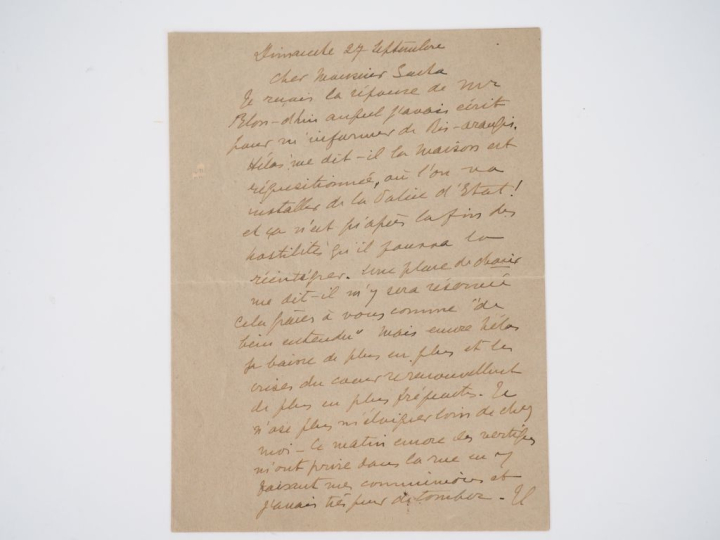 Dimanche 27 septembre
Cher Monsieur Sacha
Je reçois la réponse de Mr
Blon-dhin auquel j'avais écrit
pour m'informer de Ris-orangis.
Hélas! me dit-il la maison est
réquisitionnée, où l'on va
installer de la Police d'Etat!
et ça n'est qu'après la fin des
hostilités qu'il pourra la
réintégrer. Une place de choix
me dit-il m'y sera réservée
Cela grâces à vous comme "de
bien entendu" Mais encore hélas
je baisse de plus en plus et les
crises du cœur se renouvellent
de plus en plus fréquentes. Je
n'ose plus m'éloigner loin de chez
moi - Ce matin encore des vertiges
m'ont prise dans la rue en
faisant mes commissions et
j'avais très peur de tomber. - Il